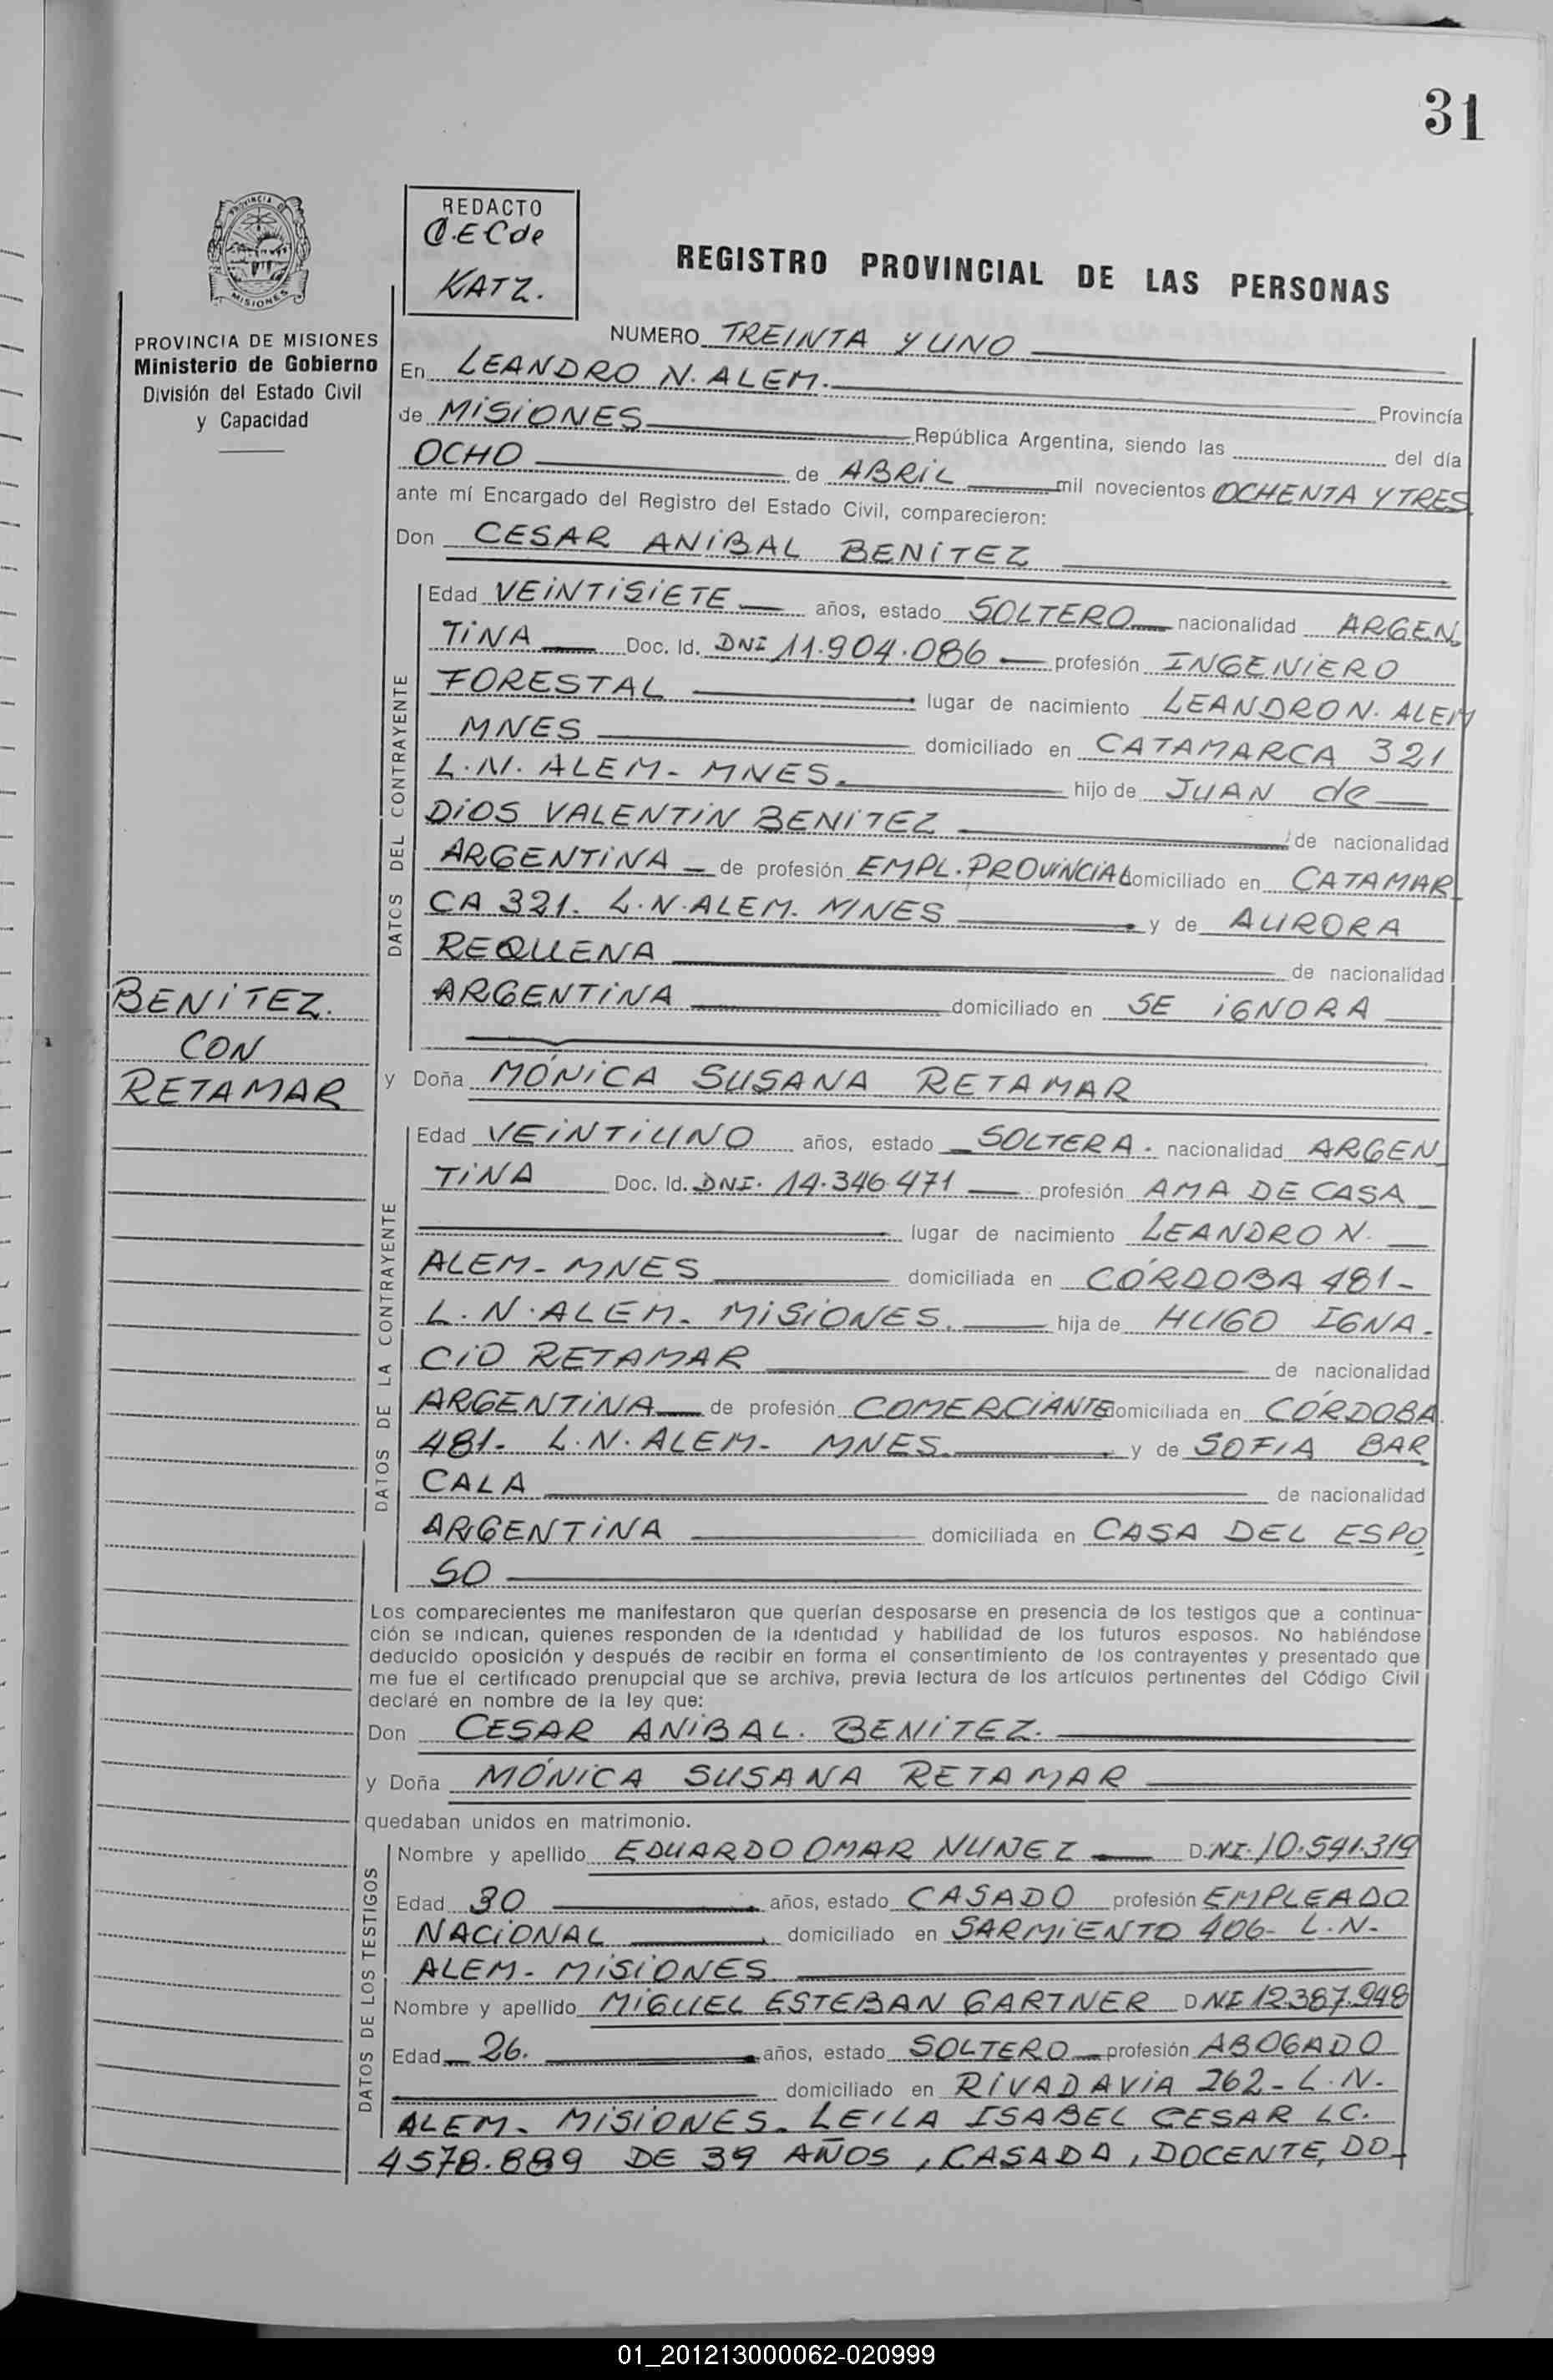 31
PROVINCIA DE
MISIONES
PROVINCIA DE MISIONES
Ministerio de Gobierno
División del Estado Civil
y Capacidad
REDACTO
C.E.C de
KATZ.
REGISTRO PROVINCIAL DE LAS PERSONAS
NUMERO TREINTA Y UNO
En LEANDRO N. ALEM. Provincia
de MISIONES República Argentina, siendo las del día
OCHO de ABRIL mil novecientos OCHENTA Y TRES
ante mí Encargado del Registro del Estado Civil, comparecieron:
Don CESAR ANIBAL BENITEZ
DATOS DEL CONTRAYENTE
Edad VEINTISIETE años, estado SOLTERO nacionalidad ARGEN
TINA Doc. Id. DNI 11.904.086 profesión INGENIERO
FORESTAL lugar de nacimiento LEANDRO N. ALEM
MNES domiciliado en CATAMARCA 321
L.N. ALEM - MNES. hijo de JUAN de
DIOS VALENTIN BENITEZ de nacionalidad
ARGENTINA de profesión EMPL. PROVINCIAL domiciliado en CATAMAR
CA 321. L.N. ALEM. MNES y de AURORA
REQUENA de nacionalidad
ARGENTINA domiciliado en SE IGNORA
BENITEZ.
CON
RETAMAR
y Doña MÓNICA SUSANA RETAMAR
DATOS DE LA CONTRAYENTE
Edad VEINTIUNO años, estado SOLTERA. nacionalidad ARGEN
TINA Doc. Id. DNI. 14.346.471 profesión AMA DE CASA
lugar de nacimiento LEANDRO N.
ALEM - MNES domiciliada en CÓRDOBA 481-
L.N. ALEM. MISIONES. hija de HUGO IGNA-
CIO RETAMAR de nacionalidad
ARGENTINA de profesión COMERCIANTE domiciliada en CÓRDOBA
481- L.N. ALEM- MNES. y de SOFIA BAR
CALA de nacionalidad
ARGENTINA domiciliada en CASA DEL ESPO
SO
Los comparecientes me manifestaron que querían desposarse en presencia de los testigos que a continua-
ción se indican, quienes responden de la identidad y habilidad de los futuros esposos. No habiéndose
deducido oposición y después de recibir en forma el consentimiento de los contrayentes y presentado que
me fue el certificado prenupcial que se archiva, previa lectura de los artículos pertinentes del Código Civil
declaré en nombre de la ley que:
Don CESAR ANIBAL. BENITEZ.
y Doña MÓNICA SUSANA RETAMAR
quedaban unidos en matrimonio.
DATOS DE LOS TESTIGOS
Nombre y apellido EDUARDO OMAR NUNEZ D.NI. 10.541.319
Edad 30 años, estado CASADO profesión EMPLEADO
NACIONAL domiciliado en SARMIENTO 406- L.N-
ALEM- MISIONES
Nombre y apellido MIGUEL ESTEBAN GARTNER DNI 12.387.948
Edad 26. años, estado SOLTERO profesión ABOGADO
domiciliado en RIVADAVIA 262- L.N.
ALEM- MISIONES. LEILA ISABEL CESAR LC.
4578.889 DE 39 AÑOS, CASADA, DOCENTE, DO
01_201213000062-020999